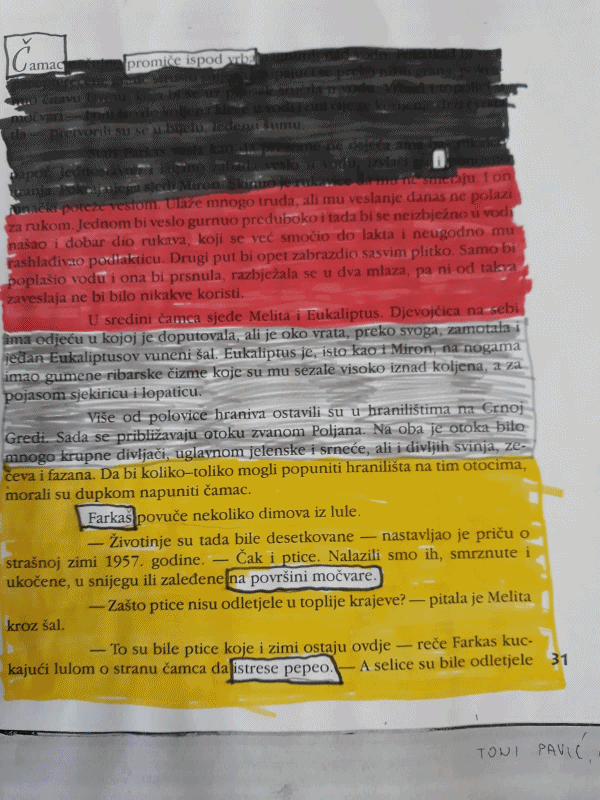 Čamac promiče ispod vrba
pretvorili su se u bijelu, ledenu šumu.
Stari Farkas
vesla u vodu, izvlači
sjedi Miron. Skinuo je rukavice da mu ne smetaju. I on
junački poteže veslom. Ulaže mnogo truda, ali mu veslanje danas ne polazi
za rukom. Jednom bi veslo gurnuo preduboko i tada bi se neizbježno u vodi
našao i dobar dio rukava, koji se već smočio do lakta i neugodno mu
rashlađivao podlakticu. Drugi put bi opet zabrazdio sasvim plitko. Samo bi
poplašio vodu i ona bi prsnula, razbježala se u dva mlaza, pa ni od takva
zaveslaja ne bi bilo nikakve koristi.
U sredini čamca sjede Melita i Eukaliptus. Djevojčica na sebi
ima odjeću u kojoj je doputovala, ali je oko vrata, preko svoga, zamotala i
jedan Eukaliptusov vuneni šal. Eukaliptus je, isto kao i Miron, na nogama
imao gumene ribarske čizme koje su mu sezale visoko iznad koljena, a za
pojasom sjekiricu i lopaticu.
Više od polovice hraniva ostavili su u hranilištima na Crnoj
Gredi. Sada se približavaju otoku zvanom Poljana. Na oba je otoka bilo
mnogo krupne divljači, uglavnom jelenske i srneće, ali i divljih svinja, ze-
čeva i fazana. Da bi koliko–toliko mogli popuniti hranilišta na tim otocima,
morali su dupkom napuniti čamac.
Farkas povuče nekoliko dimova iz lule.
— Životinje su tada bile desetkovane — nastavljao je priču o
strašnoj zimi 1957. godine. — Čak i ptice. Nalazili smo ih, smrznute i
ukočene, u snijegu ili zaleđene na površini močvare.
— Zašto ptice nisu odletjele u toplije krajeve? — pitala je Melita
kroz šal.
— To su bile ptice koje i zimi ostaju ovdje — reče Farkas kuc-
kajući lulom o stranu čamca da istrese pepeo. — A selice su bile odletjele
31
TONI PAVIĆ,